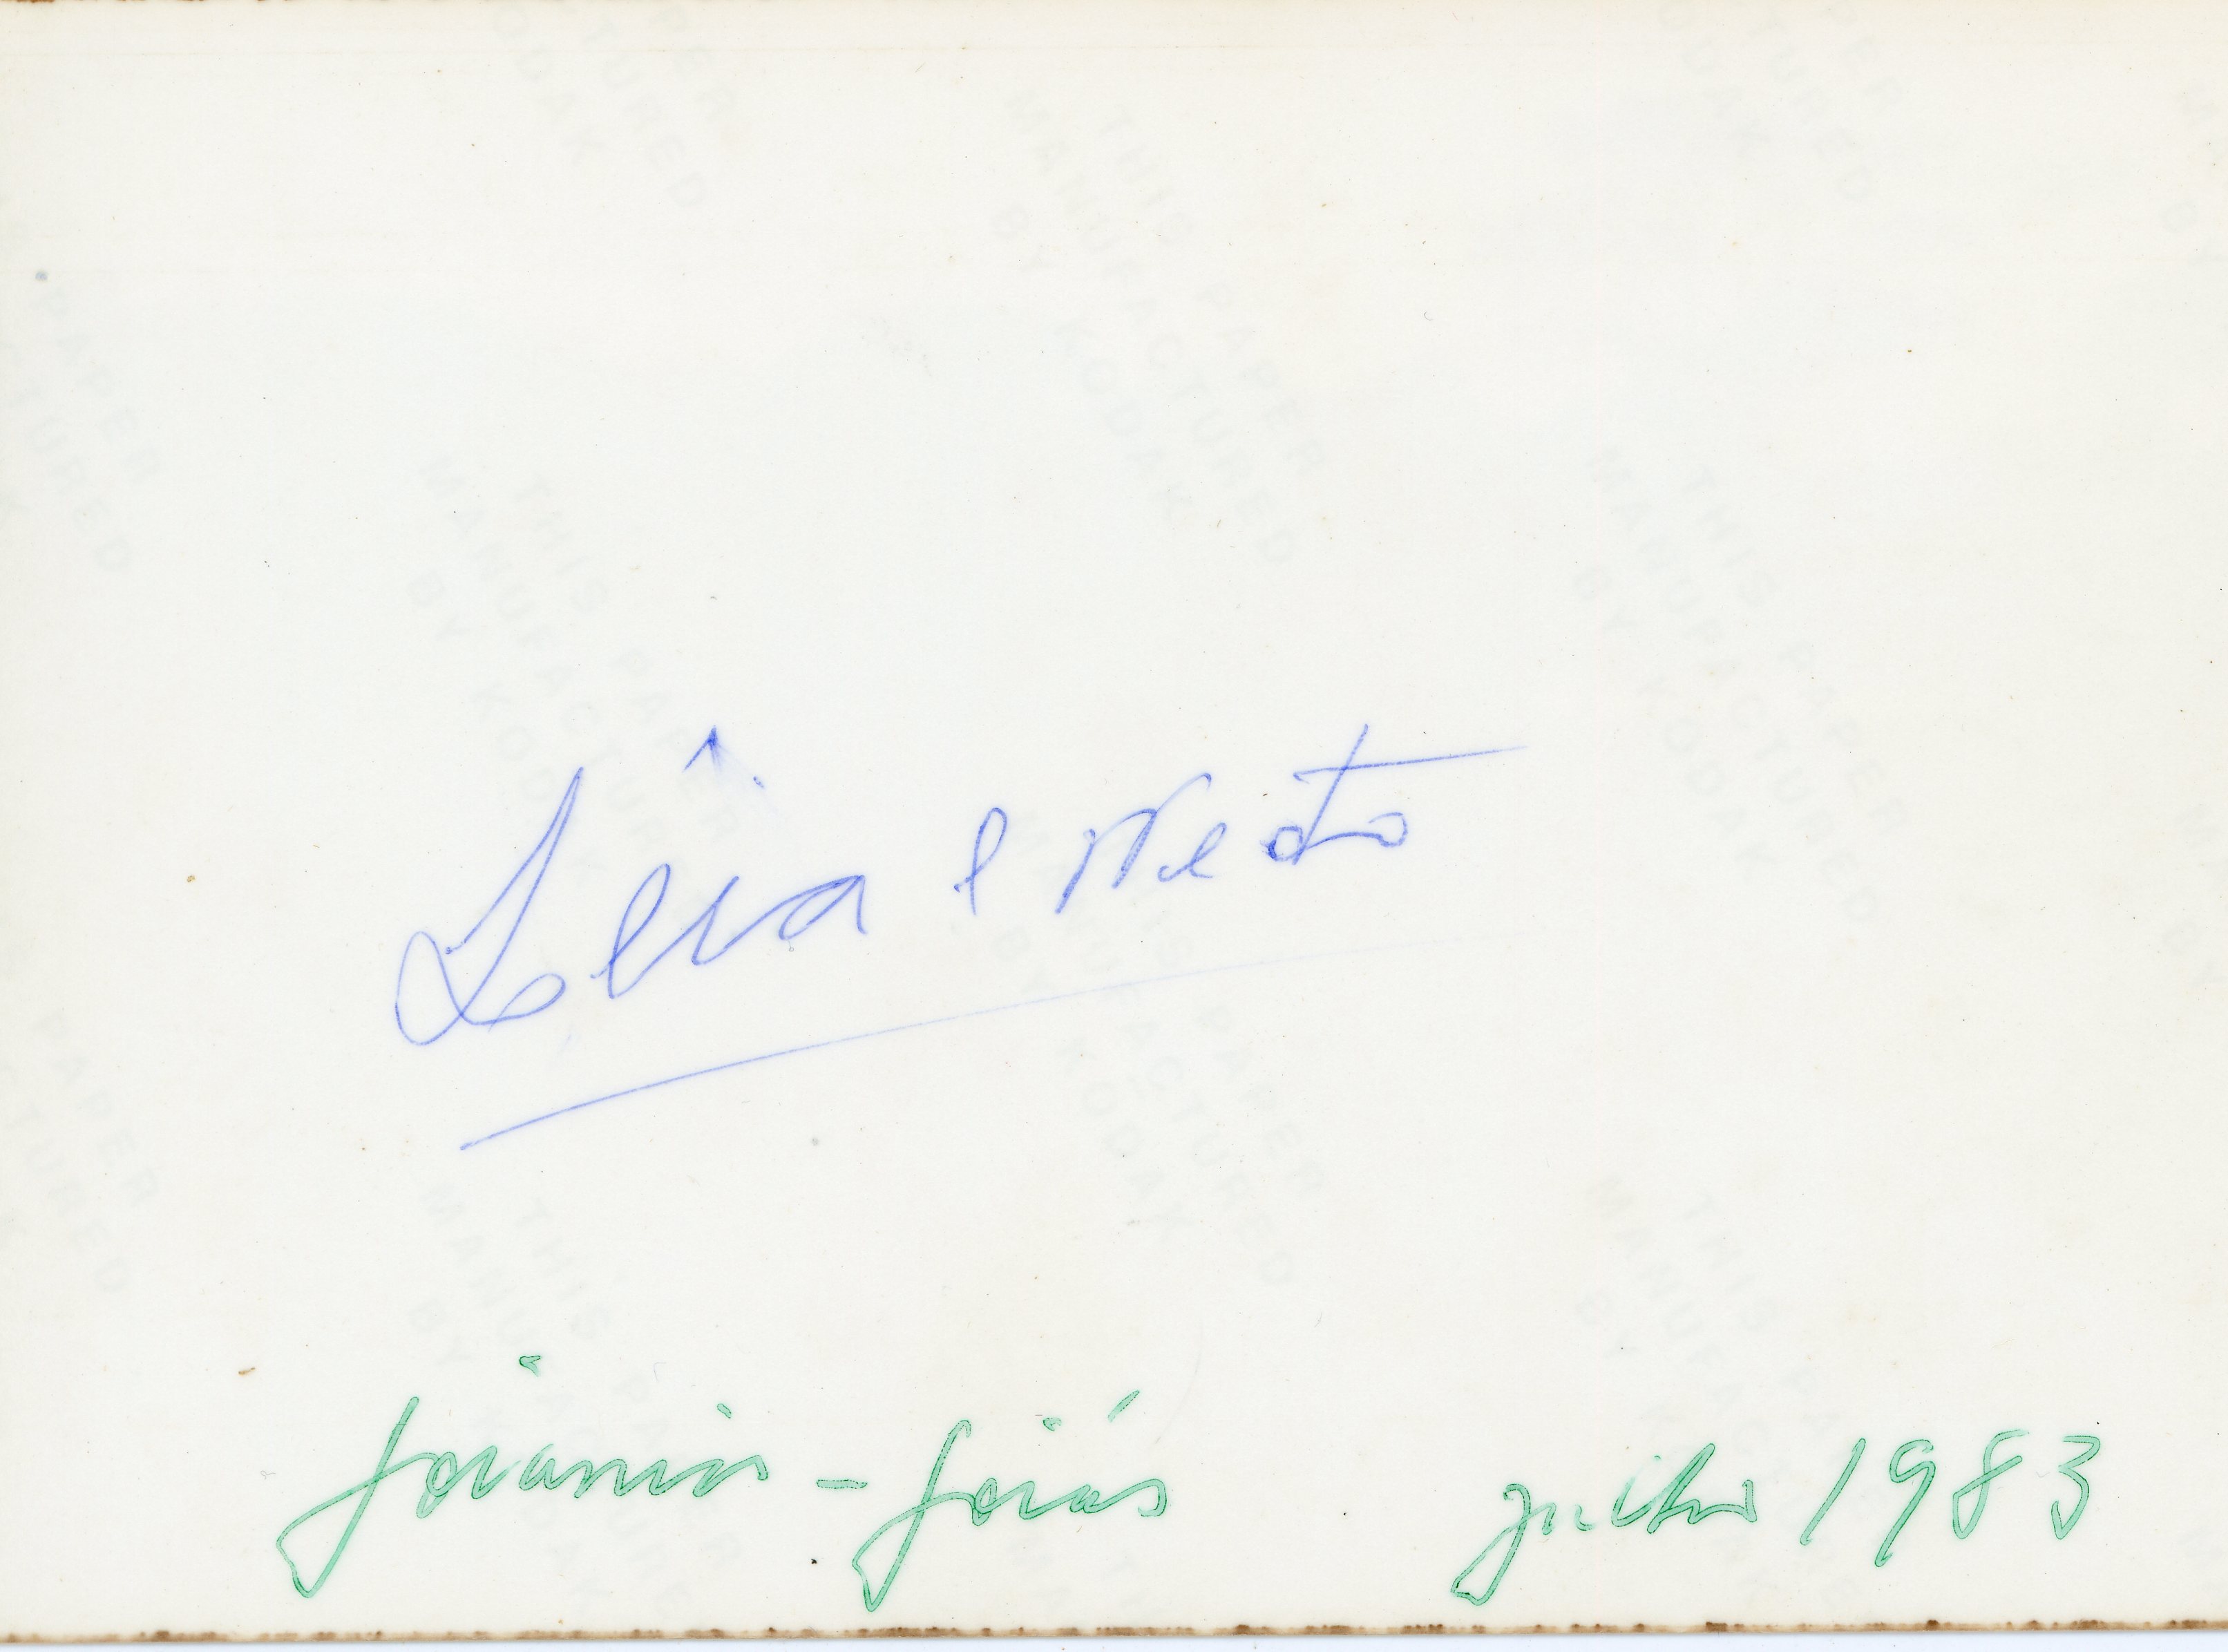 Lêia e Neto
Goiânia - Goiás julho 1983
THIS PAPER
MANUFACTURED
BY KODAK